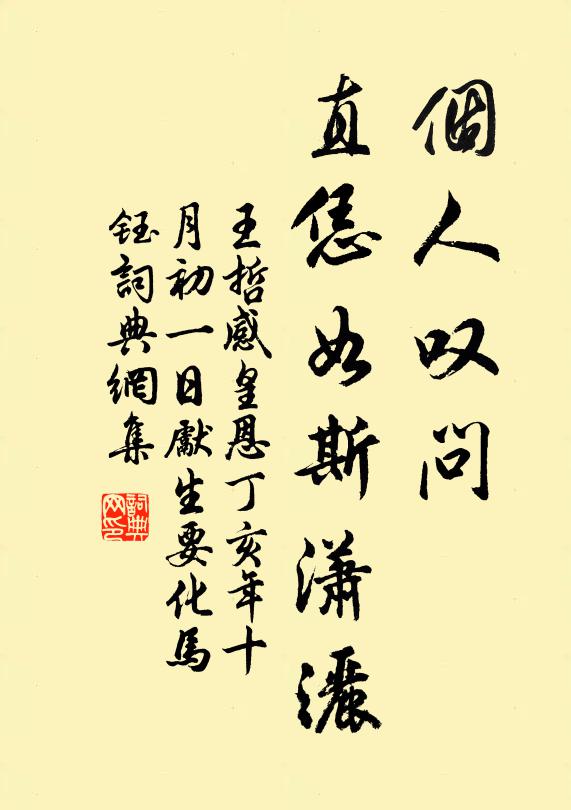 個人叹問
直恁如斯瀟灑
王哲感皇恩丁亥年十
月初一日獻生要化馬
鈺詞典網集
詞典
网印